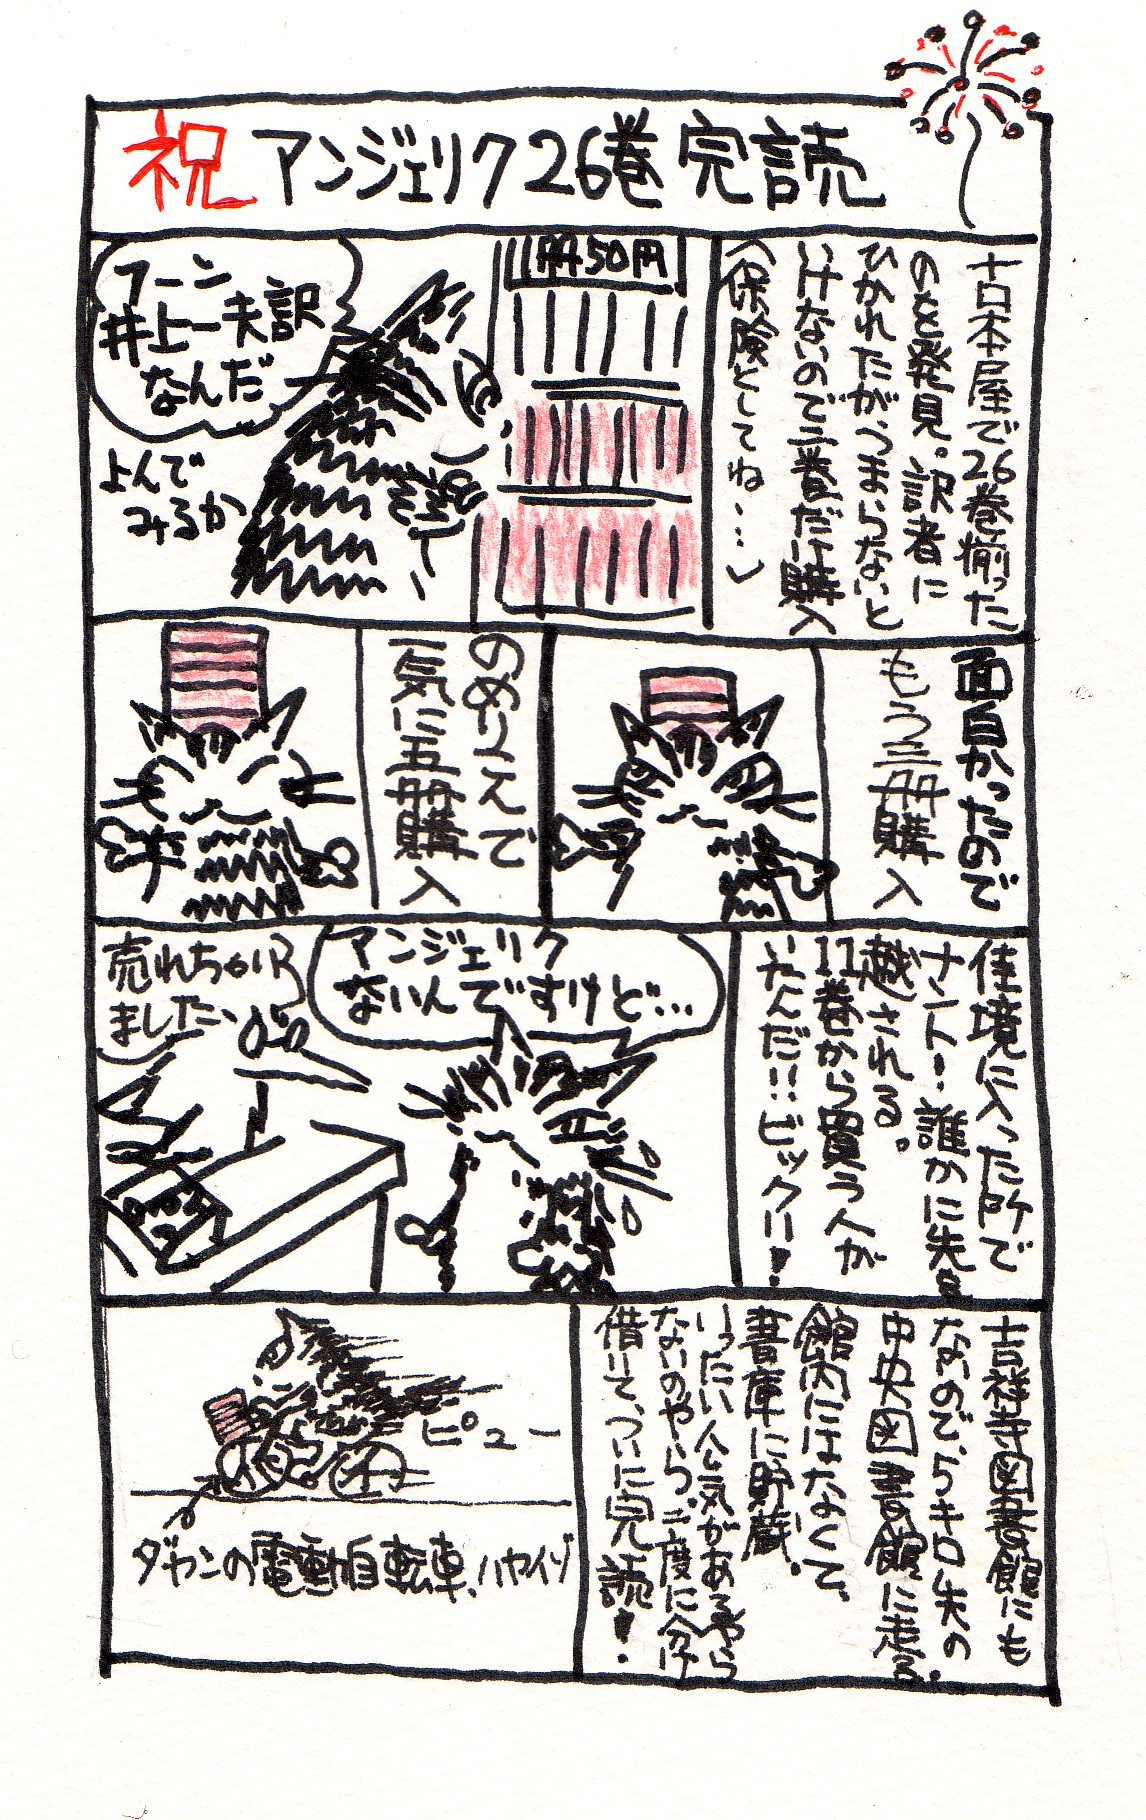 祝 アンジェリク26巻 完読
古本屋で26巻揃った
のを発見。訳者に
ひかれたが、つまらないと
いけないので一巻だけ購入
(保険としてね…)
冊50円
フーン
井上一夫訳
なんだ
よんで
みるか
面白かったので
もう三冊購入
のめりこんで
一気に五冊購入
佳境に入った所で
ナント!誰かに先を
越される。
11巻から買う人が
いたんだ!!ビックリ!
アンジェリク
ないんですけど…
売れちゃい
ました、
吉祥寺図書館にも
ないので、5キロ先の
中央図書館に走る。
館内にはなくて、
書庫に貯蔵。
いったい人気があるやら
ないのやら、二度に分け
借りて、ついに完読!
ピュー
ダヤンの電動自転車、ハヤイゾ